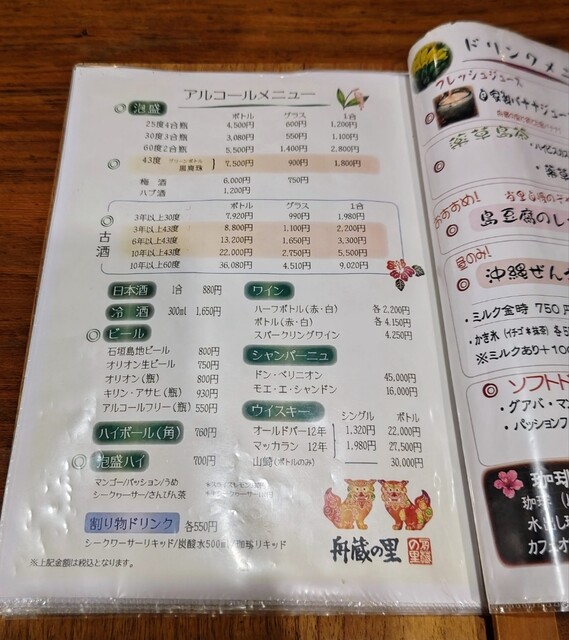 アルコールメニュー
泡盛 ボトル グラス 1合
25度4合瓶 4,500円 600円 1,200円
30度3合瓶 3,080円 550円 1,100円
60度2合瓶 5,500円 1,400円 2,800円
43度 グリーンボトル 黒真珠 7,500円 900円 1,800円
梅酒 6,000円 750円
ハブ酒 1,200円
古酒
ボトル グラス 1合
3年以上30度 7,920円 990円 1,980円
3年以上43度 8,800円 1,100円 2,200円
6年以上43度 13,200円 1,650円 3,300円
10年以上43度 22,000円 2,750円 5,500円
10年以上60度 36,080円 4,510円 9,020円
日本酒 1合 880円
冷酒 300ml 1,650円
ビール
石垣島地ビール 800円
オリオン生ビール 750円
オリオン(瓶) 800円
キリン・アサヒ(瓶) 930円
アルコールフリー(瓶) 550円
ハイボール(角) 760円
泡盛ハイ 700円
マンゴー/パッション/うめ
シークヮーサー/さんぴん茶
割り物ドリンク 各550円
シークワーサーリキッド/炭酸水500ml/珈琲リキッド
※上記金額は税込となります。
ワイン
ハーフボトル(赤・白) 各2,200円
ボトル(赤・白) 各4,150円
スパークリングワイン 4,250円
シャンパーニュ
ドン・ペリニオン 45,000円
モエ・エ・シャンドン 16,000円
ウイスキー シングル ボトル
オールドパー12年 1,320円 22,000円
マッカラン 12年 1,980円 27,500円
山崎(ボトルのみ) 30,000円
舟蔵の里
ドリンクメニ
フレッシュジュース
自家製バナナジュー
薬草島茶
おすすめ!
島豆腐のレ
昼のみ!
沖縄ぜん
・ミルク金時 750円
・かき氷(イチゴ・抹茶)各5
※ミルクあり+10
ソフトド
・グアバ・マン
・パッションフ
珈琲
水出し
カフェオ